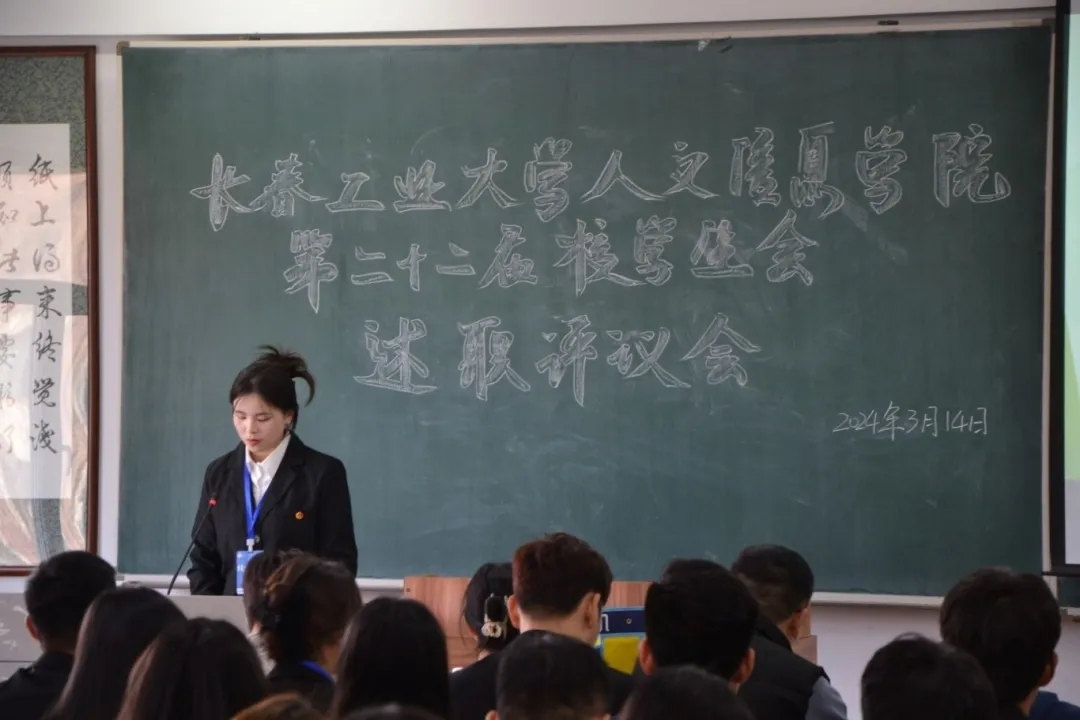 长春工业大学人文信息学院
第二十二届校学生会
述职评议会
2024年3月14日
纸上得来终觉浅